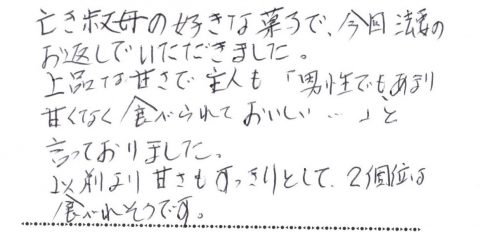 亡き叔母の好きな菓子で、今回 法要の
お返しでいただきました。
上品な甘さで 主人も 「男性でもあまり
甘くなく 食べられて おいしい …」と
言っておりました。
以前より 甘さもすっきりとして、2個位は
食べれそうです。